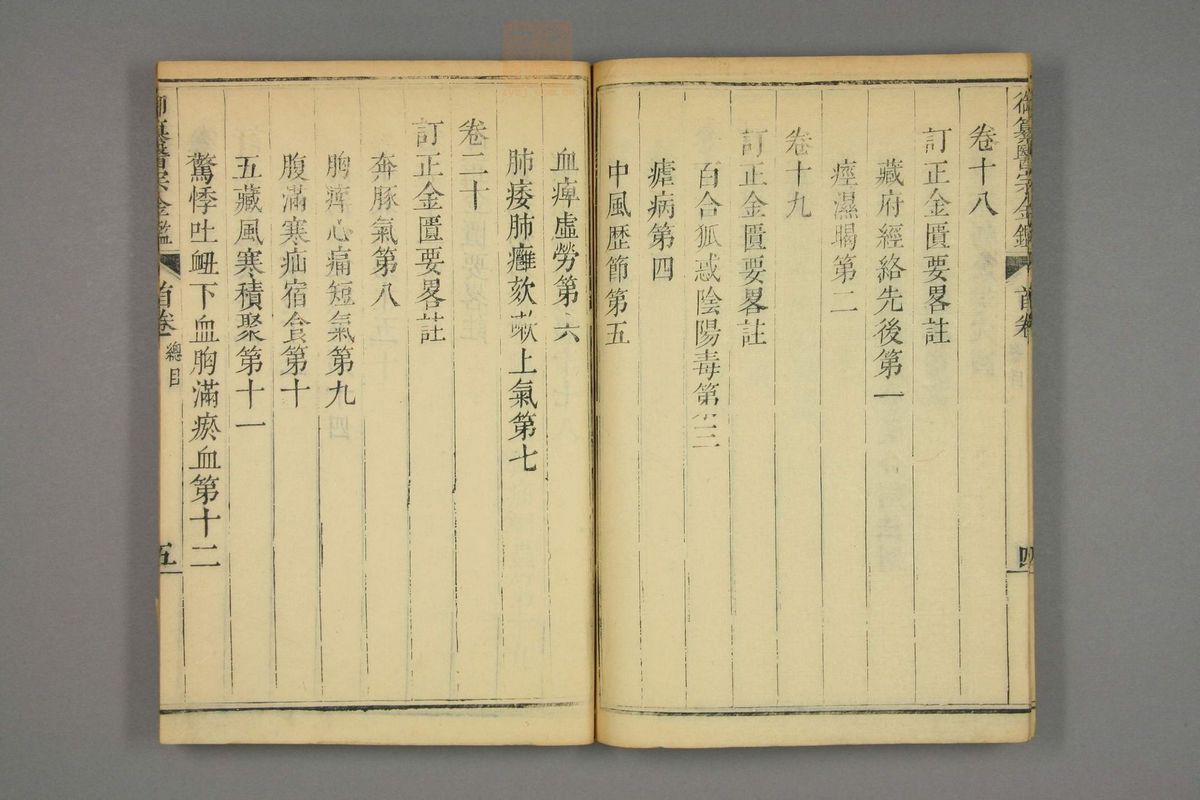 御纂醫宗金鑑 首卷 四
卷十八
訂正金匱要畧註
藏府經絡先後第一
痙濕暍第二
卷十九
訂正金匱要畧註
百合狐惑陰陽毒第三
瘧病第四
中風歷節第五
血痺虛勞第六
肺痿肺癰欬嗽上氣第七
卷二十
訂正金匱要畧註
奔豚氣第八
胸痺心痛短氣第九
腹滿寒疝宿食第十
五藏風寒積聚第十一
驚悸吐衄下血胸滿瘀血第十二
御纂醫宗金鑑 首卷 總目 五